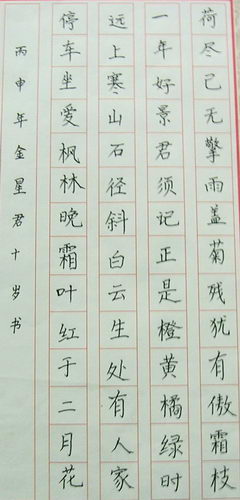 荷尽已无擎雨盖菊残犹有傲霜枝
一年好景君须记正是橙黄橘绿时
远上寒山石径斜白云生处有人家
停车坐爱枫林晚霜叶红于二月花
丙申年金星君十岁书